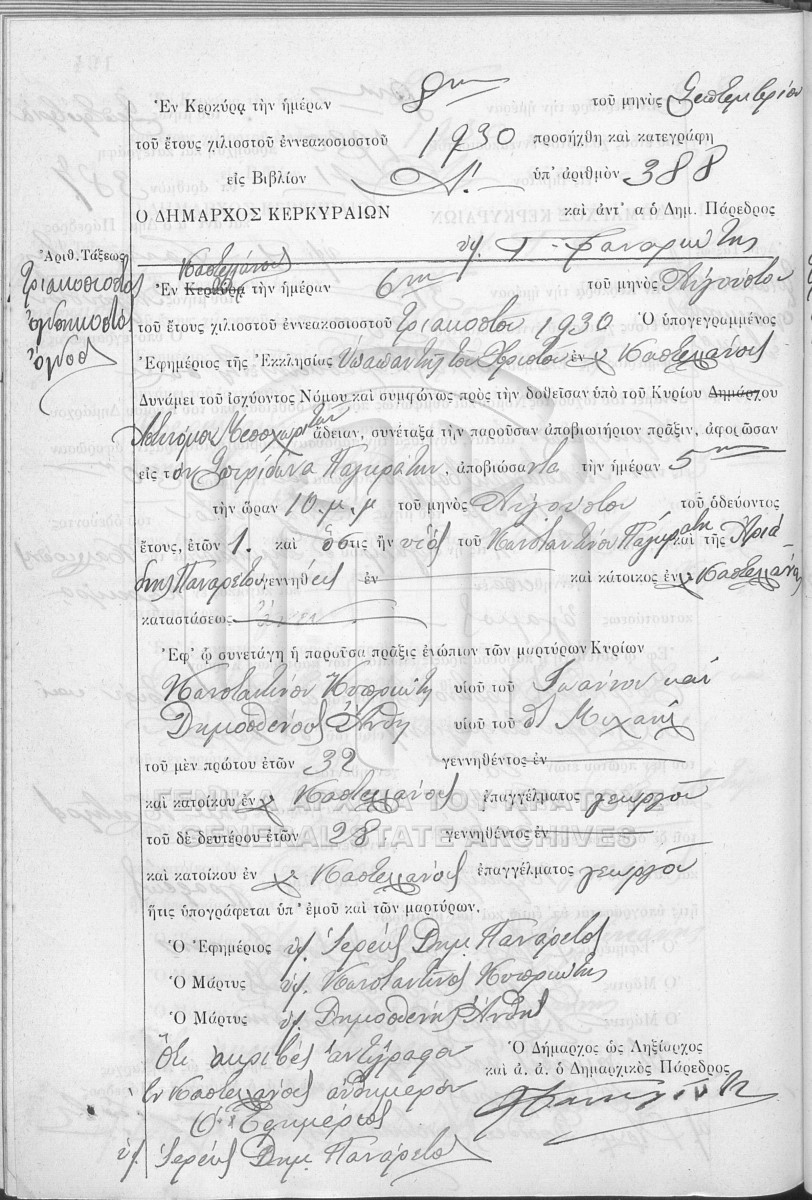 Ἐν Κερκύρᾳ τὴν ἡμέραν 8ην τοῦ μηνὸς Σεπτεμβρίου
τοῦ ἔτους χιλιοστοῦ ἐννεακοσιοστοῦ 1930 προσήχθη καὶ κατεγράφη
εἰς Βιβλίον Α'. ὑπ' ἀριθμὸν 388
Ο ΔΗΜΑΡΧΟΣ ΚΕΡΚΥΡΑΙΩΝ καὶ ἀντ' α ὁ Δημ. Πάρεδρος
Ἀριθ. Τάξεως
Τριακοσιοστὸς
ὀγδοηκοστὸς
ὄγδοος
Καστελλάνοις
Ἐν Κερκύρᾳ τὴν ἡμέραν 6ην τοῦ μηνὸς Αὐγούστου
τοῦ ἔτους χιλιοστοῦ ἐννεακοσιοστοῦ τριακοστοῦ 1930 Ὁ ὑπογεγραμμένος
Ἐφημέριος τῆς Ἐκκλησίας Ὑπαπαντῆς τοῦ Χριστοῦ ἐν χ. Καστελλάνοις
Δυνάμει τοῦ ἰσχύοντος Νόμου καὶ συμφώνως πρὸς τὴν δοθεῖσαν ὑπὸ τοῦ Κυρίου Δημάρχου
Ἀστυνόμου Μεσοχωριτῶν ἄδειαν, συνέταξα τὴν παροῦσαν ἀποβιωτήριον πρᾶξιν, ἀφορῶσαν
εἰς τὸν Σπυρίδωνα Παγκράτην, ἀποβιώσαντα τὴν ἡμέραν 5ην
τὴν ὥραν 10 μ.μ τοῦ μηνὸς Αὐγούστου τοῦ ὁδεύοντος
ἔτους, ἐτῶν 1. καὶ ὅστις ἦν υἱὸς τοῦ Κωνσταντίνου Παγκράτη καὶ τῆς Ἀριά-
δνης Παναρέτου γεννηθεὶς ἐν καὶ κάτοικος ἐν χ. Καστελλάνοις
καταστάσεως
Ἐφ' ᾧ συνετάγη ἡ παροῦσα πρᾶξις ἐνώπιον τῶν μαρτύρων Κυρίων
Κωνσταντίνου Κυπριώτη υἱοῦ τοῦ Ἰωάννου καὶ
Δημοσθένους Ἄνθη υἱοῦ τοῦ Μιχαὴλ
τοῦ μὲν πρώτου ἐτῶν 32 γεννηθέντος ἐν
καὶ κατοίκου ἐν χ. Καστελλάνοις ἐπαγγέλματος γεωργοῦ
ΓΕΝΙΚΑ ΑΡΧΕΙΑ ΤΟΥ ΚΡΑΤΟΥΣ
τοῦ δὲ δευτέρου ἐτῶν 28 γεννηθέντος ἐν
GENERAL STATE ARCHIVES
καὶ κατοίκου ἐν χ. Καστελλάνοις ἐπαγγέλματος γεωργοῦ
ἥτις ὑπογράφεται ὑπ' ἐμοῦ καὶ τῶν μαρτύρων.
Ὁ Ἐφημέριος ὑπ. Ἱερεὺς Δημ. Πανάρετος
Ὁ Μάρτυς ὑπ. Κωνσταντῖνος Κυπριώτης
Ὁ Μάρτυς ὑπ. Δημοσθένης Ἄνθης
Ὅτι ἀκριβὲς ἀντίγραφον
Ἐν Καστελλάνοις αὐθημερόν
Ὁ Ἐφημέριος
ὑπ. Ἱερεὺς Δημ. Πανάρετος
Ὁ Δήμαρχος ὡς Ληξίαρχος
καὶ ἀ. ἀ. ὁ Δημαρχικὸς Πάρεδρος